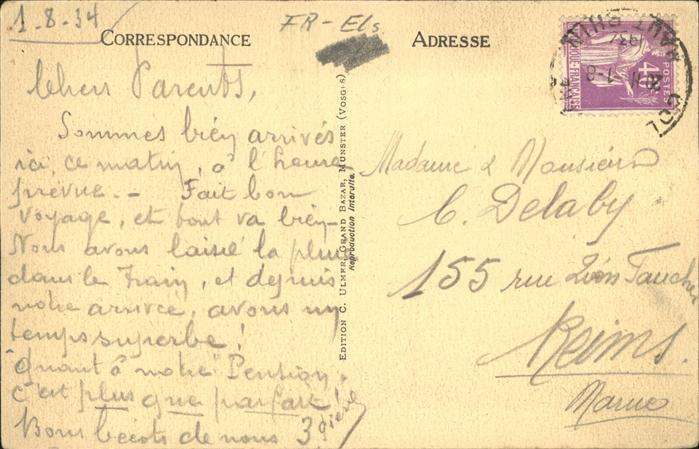 1-8-34
FR-Els
CORRESPONDANCE
ADRESSE
Chers Parents,
Sommes bien arrivés
ici, ce matin, à l'heure
prévue. - Fait bon
voyage, et tout va bien
Nous avons laissé la pluie
dans le train, et depuis
notre arrivée, avons un
temps superbe!
quant à notre "Pension"
c'est plus que parfait!
Bons bécots de nous 3
EDITION C. ULMER, GRAND BAZAR, MUNSTER (VOSGES)
Reproduction interdite.
POSTES
40
Madame & Monsieur
C. Delaby
155 rue Léon Fauche
Reims.
Marne